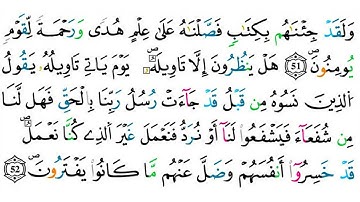 وَلَقَدْ جِئْنَٰهُم بِكِتَٰبٍ فَصَّلْنَٰهُ عَلَىٰ عِلْمٍ هُدًى وَرَحْمَةً لِّقَوْمٍ
يُومِنُونَ ۖ 51 هَلْ يَنظُرُونَ إِلَّا تَاوِيلَهُۥ ۖ يَوْمَ يَاتِے تَاوِيلُهُۥ يَقُولُ
اُلذِينَ نَسُوهُ مِن قَبْلُ قَدْ جَآءَتْ رُسُلُ رَبِّنَا بِالْحَقِّ فَهَل لَّنَا
مِن شُفَعَآءَ فَيَشْفَعُوا۟ لَنَآ أَوْ نُرَدُّ فَنَعْمَلَ غَيْرَ اَلذِے كُنَّا نَعْمَلُ ۖ
قَدْ خَسِرُوٓا۟ أَنفُسَهُمْ وَضَلَّ عَنْهُم مَّا كَانُوا۟ يَفْتَرُونَ ۖ 52